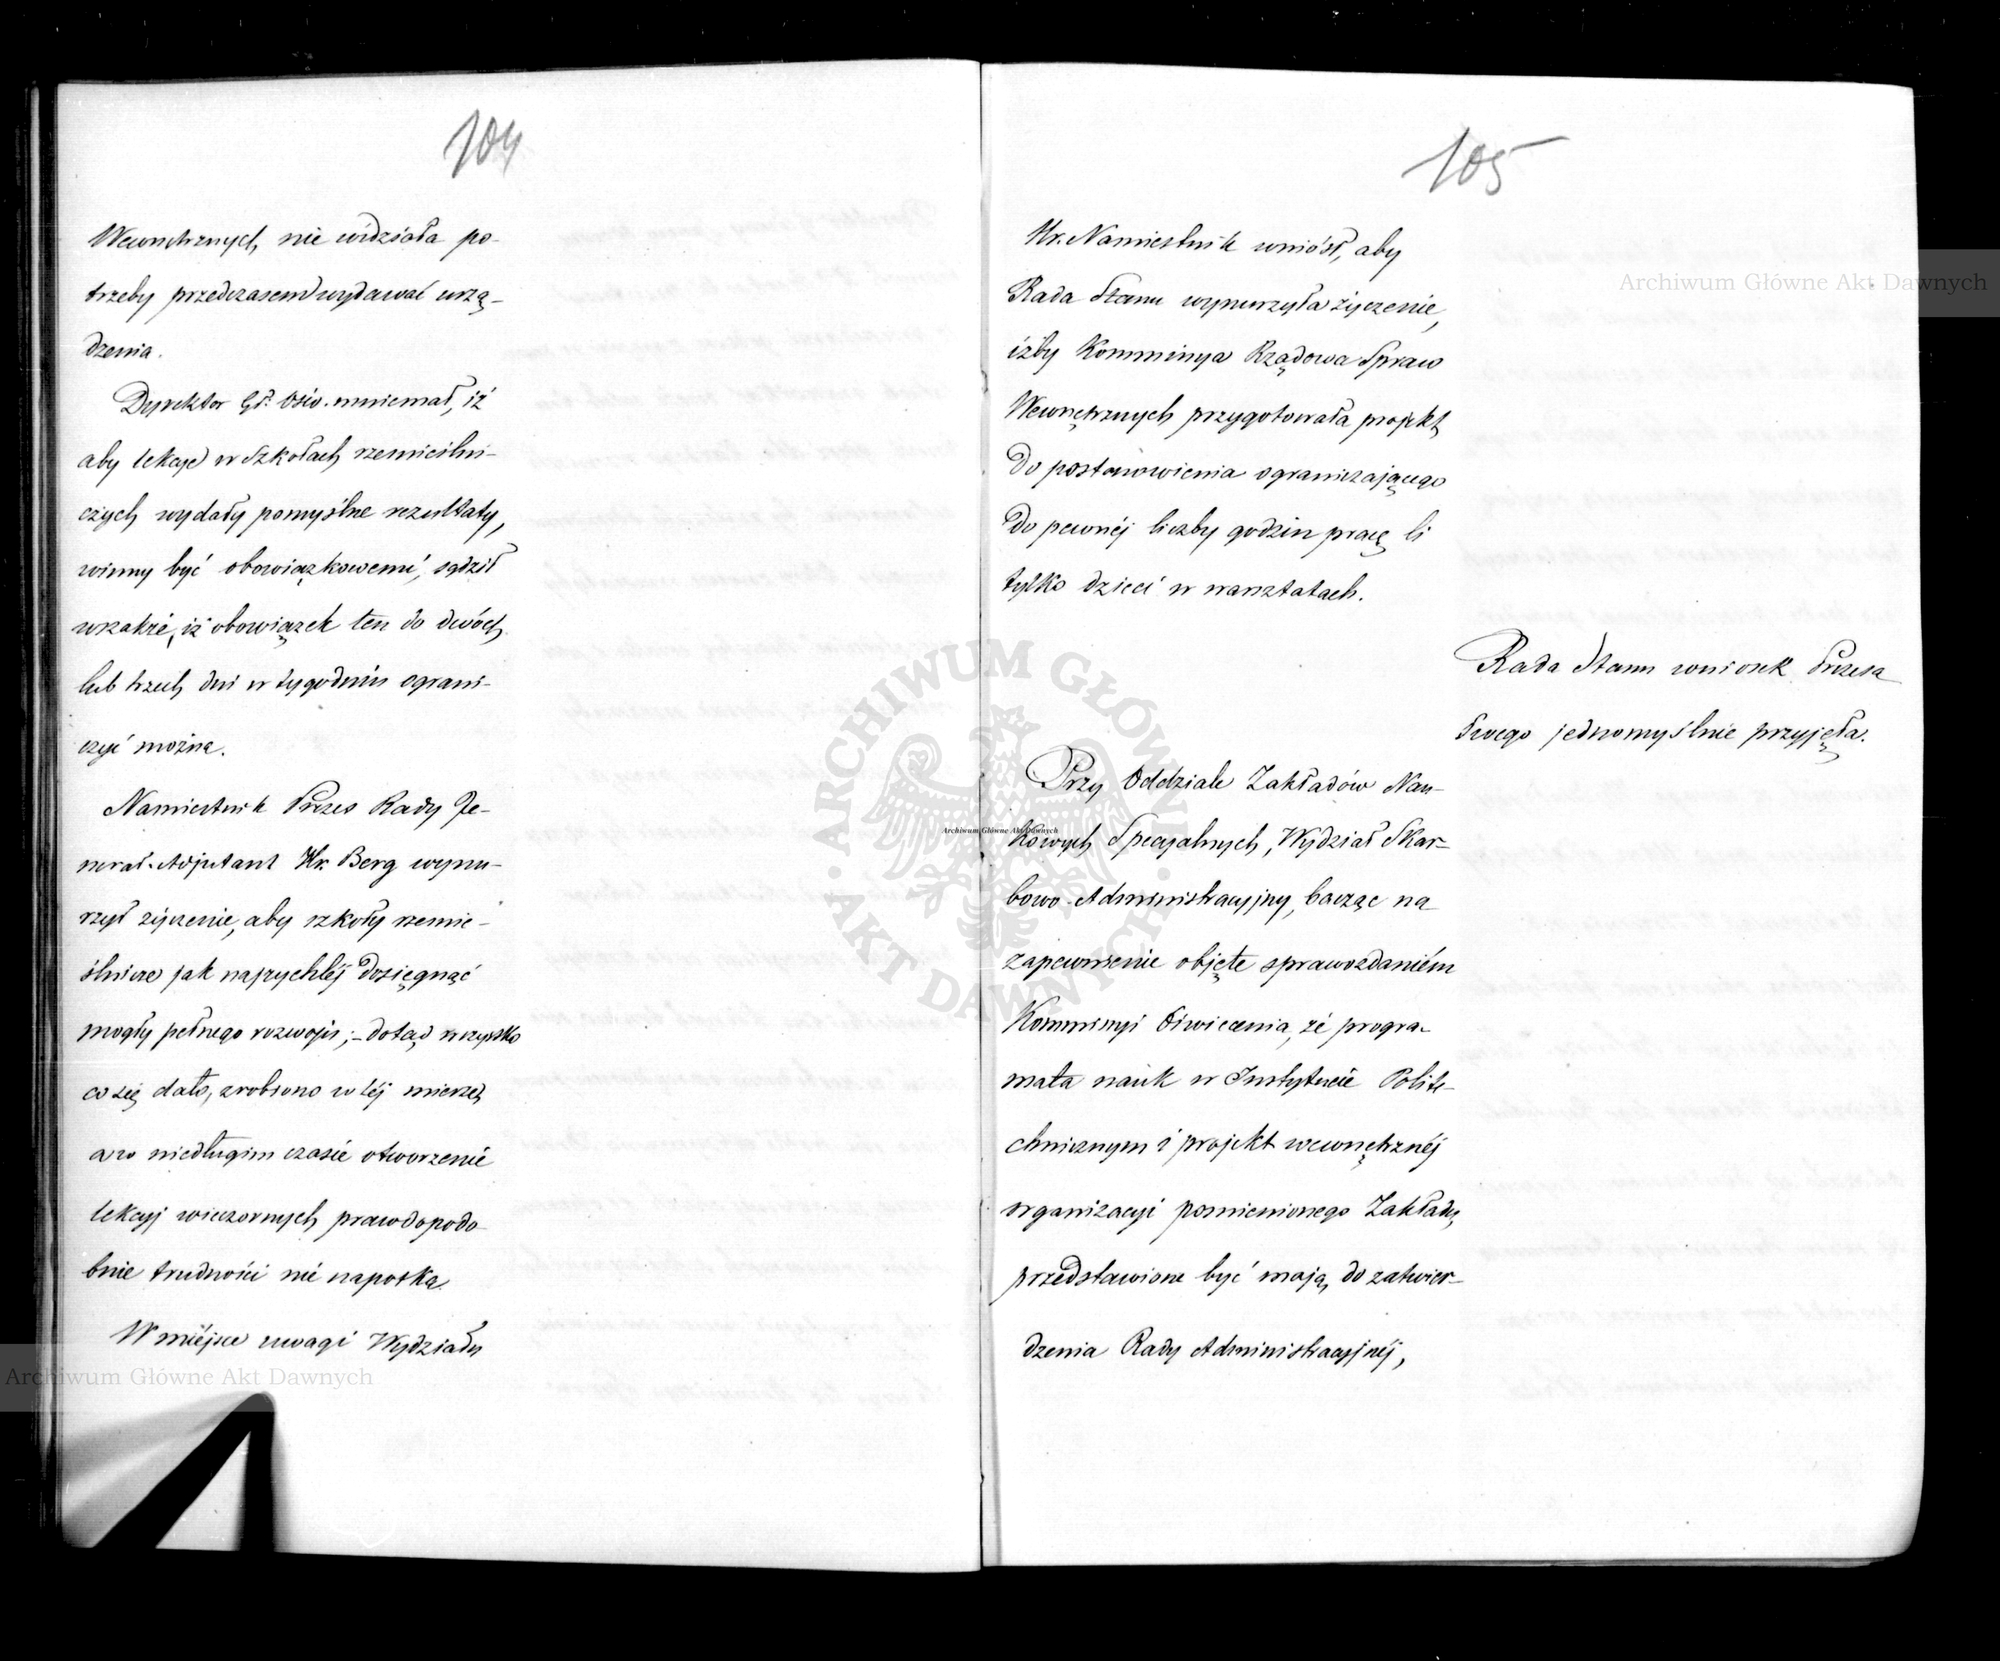 104
Wewnętrznych, nie widziała po-
trzeby przedczasem wydawać urzą-
dzenia.
Dyrektor Gł. Ośw. mniemał, iż
aby lekcye w szkołach rzemieślni-
czych wydały pomyślne rezultaty,
winny być obowiązkowemi, sądził
wszakże, iż obowiązek ten do dwóch
lub trzech dni w tygodniu ograni-
czyć można.
Namiestnik Prezes Rady Je-
nerał-Adjutant Hr. Berg wynu-
rzył życzenie, aby szkoły rzemie-
ślnicze jak najrychlej dosięgnąć
mogły pełnego rozwoju; – dotąd wszystko
co się dało, zrobiono w téj mierze,
a w niedługim czasie otworzenie
lekcyj wieczornych prawdopodo-
bnie trudności nie napotka.
W miejsce uwagi Wydziału
105
Hr. Namiestnik wniósł, aby
Rada Stanu wynurzyła życzenie,
iżby Kommissya Rządowa Spraw
Wewnętrznych przygotowała projekt
do postanowienia ograniczającego
do pewnéj liczby godzin pracę li
tylko dzieci w warsztatach.
Rada Stanu wniosek Prezesa
swego jednomyślnie przyjęła.
Przy Oddziale Zakładów Nau-
kowych Specyalnych, Wydział Skar-
bowo-Administracyjny, bacząc na
zapewnienie objęte sprawozdaniem
Kommissyi Oświecenia, że progra-
mata nauk w Instytucie Polite-
chnicznym i projekt wewnętrznéj
organizacyi pomienionego Zakładu,
przedstawione być mają do zatwier-
dzenia Rady Administracyjnéj,
Archiwum Główne Akt Dawnych
Archiwum Główne Akt Dawnych
Archiwum Główne Akt Dawnych
ARCHIWUM GŁÓWNE
AKT DAWNYCH